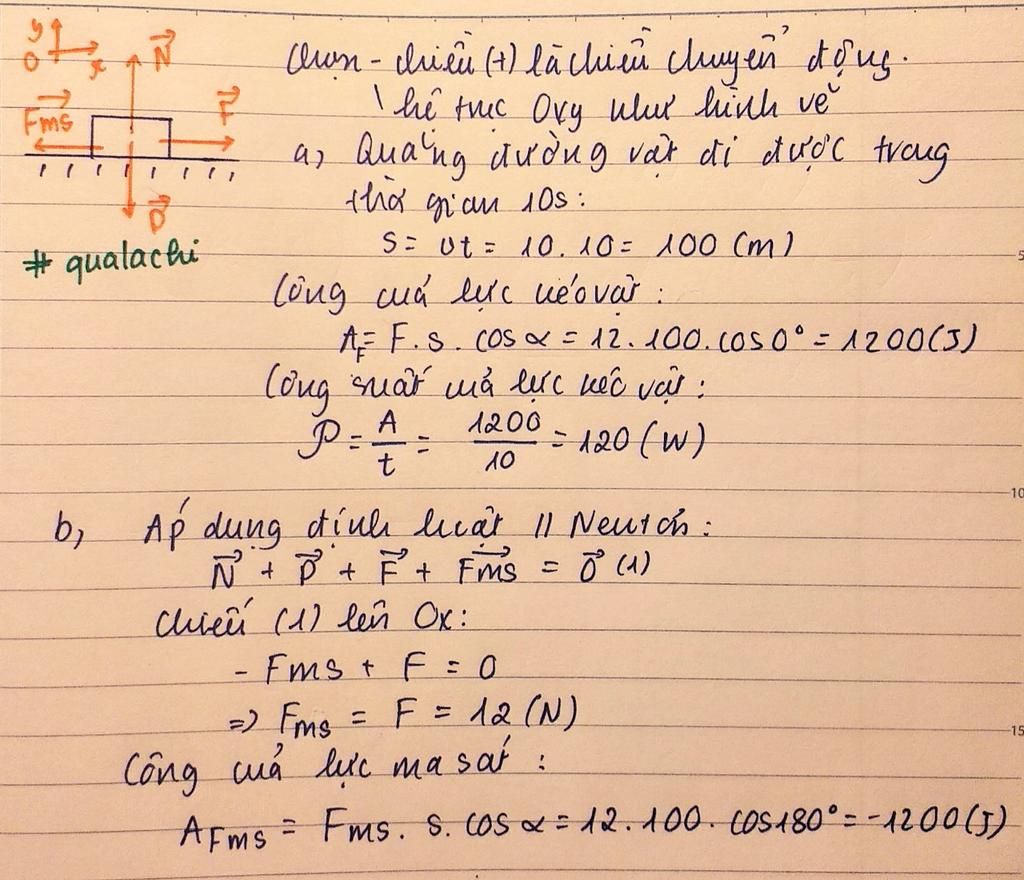 y
O x
N
Fms
F
P
# qualachi
Chọn - chiều (+) là chiều chuyển động.
\ hệ trục Oxy như hình vẽ
a, Quãng đường vật đi được trong
thời gian 10s:
s = vt = 10.10 = 100 (m)
Công của lực kéo vật:
A_F = F.s.cos α = 12.100.cos0° = 1200(J)
Công suất của lực kéo vật:
𝒫 = A/t = 1200/10 = 120 (W)
b, Áp dụng định luật II Newton:
N⃗ + P⃗ + F⃗ + Fms⃗ = 0⃗ (1)
Chiếu (1) lên Ox:
- Fms + F = 0
=> Fms = F = 12 (N)
Công của lực ma sát:
A_Fms = Fms.s.cos α = 12.100.cos180° = -1200(J)
5
10
15